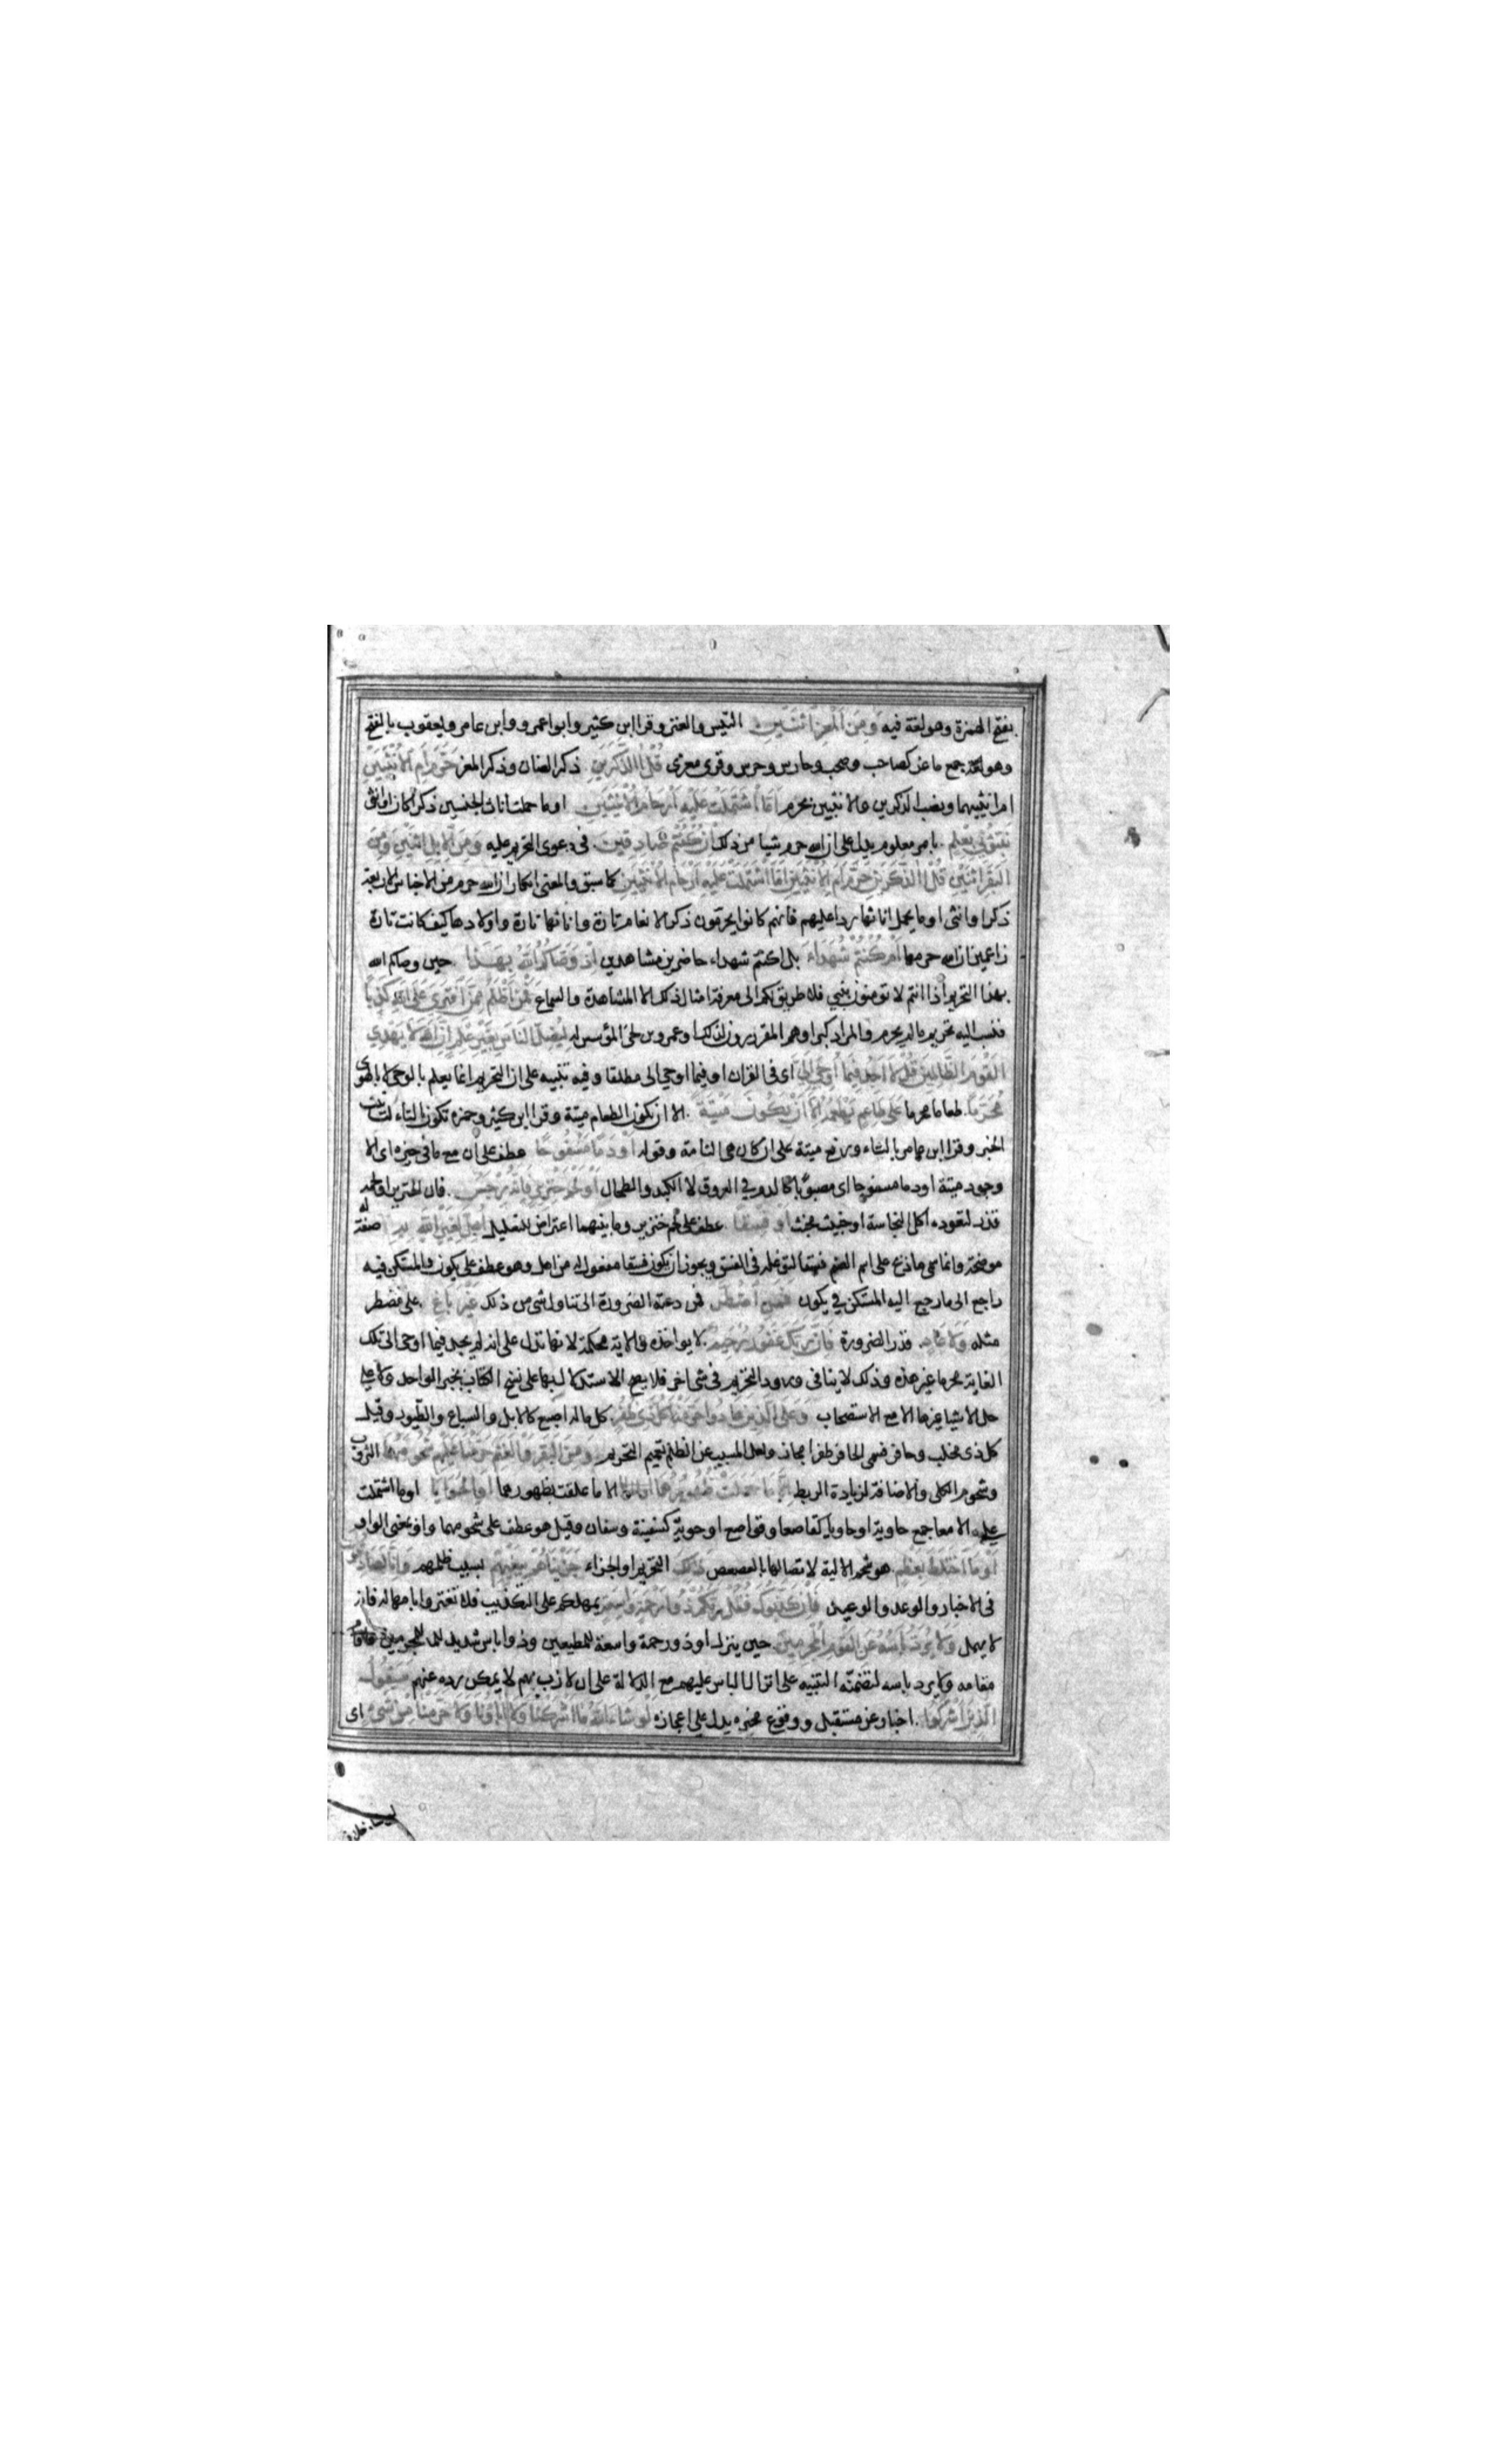 بفتح الهمزة وهو لغة فيه وَمِنَ الْمَعْزِ اثْنَيْنِ التيس والعنز وقرا ابن كثير وابو عمرو وابن عامر ويعقوب بالفتح
وهو جمع ماعز كصاحب وصحب وحارس وحرس وقرئ معزى قُلْ آالذَّكَرَيْنِ ذكر الضان وذكر المعز حَرَّمَ أَمِ الْأُنْثَيَيْنِ
ام انثييهما ونصب الذكرين والانثيين بحرم أَمَّا اشْتَمَلَتْ عَلَيْهِ أَرْحَامُ الْأُنْثَيَيْنِ او ما حملت اناث الجنسين ذكرا كان او انثى
نَبِّئُونِي بِعِلْمٍ بامر معلوم يدل على ان الله حرم شيا من ذلك إِنْ كُنْتُمْ صَادِقِينَ فى دعوى التحريم عليه وَمِنَ الْإِبِلِ اثْنَيْنِ وَمِنَ
الْبَقَرِ اثْنَيْنِ قُلْ آالذَّكَرَيْنِ حَرَّمَ أَمِ الْأُنْثَيَيْنِ أَمَّا اشْتَمَلَتْ عَلَيْهِ أَرْحَامُ الْأُنْثَيَيْنِ كما سبق والمعنى انكار ان الله حرم من الاجناس الاربعة
ذكرا وانثى او ما يحمل اناثها ردا عليهم فانهم كانوا يحرمون ذكر الانعام تارة واناثها تارة واولادها كيف كانت تارة
زاعمين ان الله حرمها أَمْ كُنْتُمْ شُهَدَاءَ بل اكنتم شهداء حاضرين مشاهدين إِذْ وَصَّاكُمُ اللَّهُ بِهَذَا حين وصاكم الله
بهذا التحريم اذ انتم لا تومنون بنبي فلا طريق لكم الى معرفة امثال ذلك الا المشاهدة والسماع فَمَنْ أَظْلَمُ مِمَّنِ افْتَرَى عَلَى اللَّهِ كَذِبًا
فنسب اليه تحريم ما لم يحرم والمراد كبراوهم المقررون لذلك او عمرو بن لحى المؤسس له لِيُضِلَّ النَّاسَ بِغَيْرِ عِلْمٍ إِنَّ اللَّهَ لَا يَهْدِي
الْقَوْمَ الظَّالِمِينَ قُلْ لَا أَجِدُ فِيمَا أُوحِيَ إِلَيَّ اى فى القران او فيما اوحى الى مطلقا وفيه تنبيه على ان التحريم انما يعلم بالوحى لا بالهوى
مُحَرَّمًا طعاما محرما عَلَى طَاعِمٍ يَطْعَمُهُ إِلَّا أَنْ يَكُونَ مَيْتَةً الا ان يكون الطعام ميتة وقرا ابن كثير وحمزة تكون بالتاء لتانيث
الخبر وقرا ابن عامر بالتاء ورفع ميتة على ان كان هى التامة وقوله أَوْ دَمًا مَسْفُوحًا عطف على ان مع ما فى حيزه اى الا
وجود ميتة او دما مسفوحا اى مصبوبا كالدم في العروق لا الكبد والطحال أَوْ لَحْمَ خِنْزِيرٍ فَإِنَّهُ رِجْسٌ فان الخنزير او لحمه
قذر لتعوده اكل النجاسة او خبيث مخبث أَوْ فِسْقًا عطف على لحم خنزير وما بينهما اعتراض للتعليل أُهِلَّ لِغَيْرِ اللَّهِ بِهِ صفة له
موضحة وانما سمى ما ذبح على اسم الصنم فسقا لتوغله فى الفسق ويجوز ان يكون فسقا مفعولا له من اهل وهو عطف على يكون والمستكن فيه
راجع الى ما رجع اليه المستكن في يكون فَمَنِ اضْطُرَّ فمن دعته الضرورة الى تناول شى من ذلك غَيْرَ بَاغٍ على مضطر
مثله وَلَا عَادٍ قدر الضرورة فَإِنَّ رَبَّكَ غَفُورٌ رَحِيمٌ لا يواخذه والاية محكمة لانها تدل على انه لم يجد فيما اوحى الى تلك
الغاية محرما غير هذه وذلك لا ينافى ورود التحريم فى شى اخر فلا يصح الاستدلال بها على نسخ الكتاب بخبر الواحد ولا على
حل الاشيا غيرها الا مع الاستصحاب وَعَلَى الَّذِينَ هَادُوا حَرَّمْنَا كُلَّ ذِي ظُفُرٍ كل ما له اصبع كالابل والسباع والطيور وقيل
كل ذى مخلب وحافر فسمى الحافر ظفرا مجاز ولعل المسبب عن الظلم تعميم التحريم وَمِنَ الْبَقَرِ وَالْغَنَمِ حَرَّمْنَا عَلَيْهِمْ شُحُومَهُمَا الثروب
وشحوم الكلى والاضافة لزيادة الربط إِلَّا مَا حَمَلَتْ ظُهُورُهُمَا الا ما علقت بظهورهما أَوِ الْحَوَايَا او ما اشتملت
عليه الامعا جمع حاوية او حاويا كقاصعا وقواصع او حوية كسفينة وسفان وقيل هو عطف على شحومهما واو بمعنى الواو
أَوْ مَا اخْتَلَطَ بِعَظْمٍ هو شحم الالية لاتصالها بالعصعص ذَلِكَ التحريم او الجزاء جَزَيْنَاهُمْ بِبَغْيِهِمْ بسبب ظلمهم وَإِنَّا لَصَادِقُونَ
فى الاخبار والوعد والوعيد فَإِنْ كَذَّبُوكَ فَقُلْ رَبُّكُمْ ذُو رَحْمَةٍ وَاسِعَةٍ يمهلكم على التكذيب فلا تغتروا بامهاله فانه
لا يهمل وَلَا يُرَدُّ بَأْسُهُ عَنِ الْقَوْمِ الْمُجْرِمِينَ حين ينزل او ذو رحمة واسعة للمطيعين وذو اباس شديد للمجرمين فاقام
مقامه ولا يرد باسه لتضمنه التنبيه على انزال الباس عليهم مع الدلالة على ان لازب بهم لا يمكن رده عنهم سَيَقُولُ
الَّذِينَ أَشْرَكُوا اخبار عن مستقبل ووقوع مخبره يدل على اعجازه لَوْ شَاءَ اللَّهُ مَا أَشْرَكْنَا وَلَا آبَاؤُنَا وَلَا حَرَّمْنَا مِنْ شَيْءٍ اى